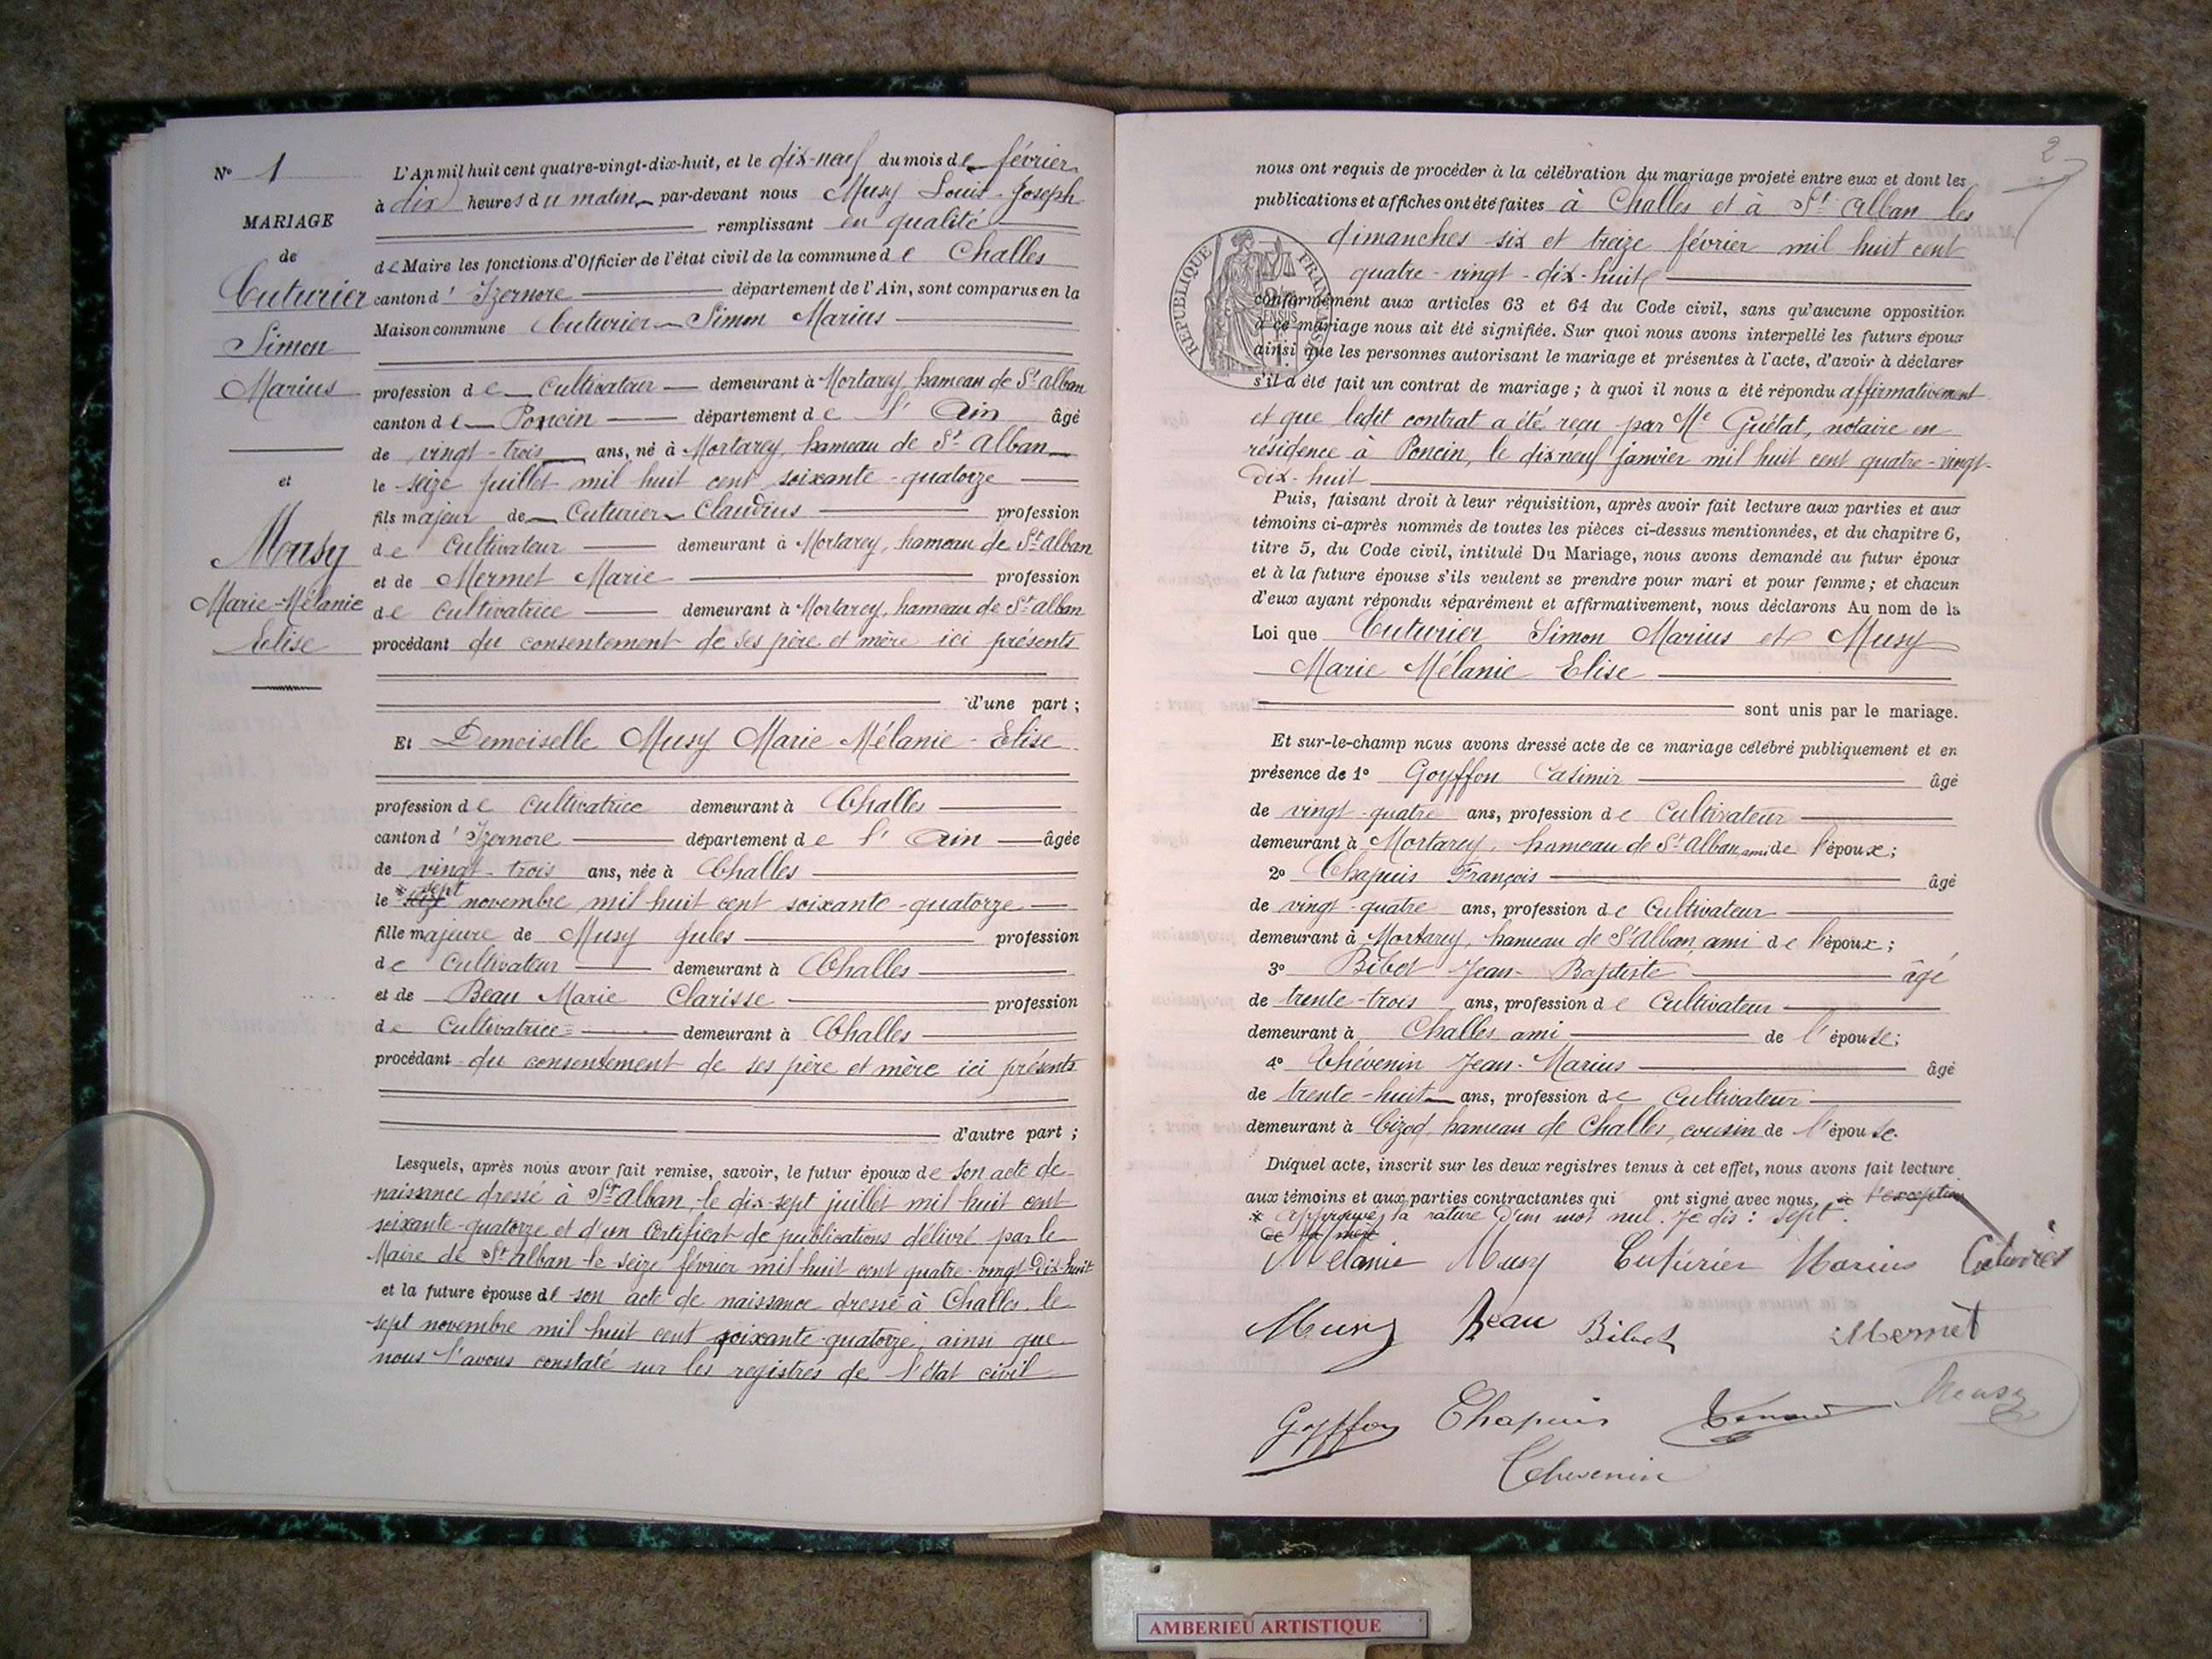 N° 1
MARIAGE
de
Cuturier
Simon
Marius
et
Musy
Marie-Mélanie
Elise
L'An mil huit cent quatre-vingt-dix-huit, et le dix-neuf du mois de février
à dix heures du matin par-devant nous Musy Louis-Joseph
remplissant en qualité
de Maire les fonctions d'Officier de l'état civil de la commune de Challes
canton d'Izernore département de l'Ain, sont comparus en la
Maison commune Cuturier Simon Marius
profession de Cultivateur demeurant à Mortarey, hameau de St alban
canton de Poncin département de l'Ain âgé
de vingt-trois ans, né à Mortarey, hameau de St Alban
le seize juillet mil huit cent soixante-quatorze
fils majeur de Cuturier Claudius profession
de Cultivateur demeurant à Mortarey, hameau de St alban
et de Mermet Marie profession
de Cultivatrice demeurant à Mortarey, hameau de St alban
procédant du consentement de ses père et mère ici présents
d'une part ;
Et Demoiselle Musy Marie Mélanie-Elise
profession de Cultivatrice demeurant à Challes
canton d'Izernore département de l'Ain âgée
de vingt-trois ans, née à Challes
le * sept novembre mil huit cent soixante-quatorze
fille majeure de Musy Jules profession
de Cultivateur demeurant à Challes
et de Beau Marie Clarisse profession
de Cultivatrice demeurant à Challes
procédant du consentement de ses père et mère ici présents
d'autre part ;
Lesquels, après nous avoir fait remise, savoir, le futur époux de son acte de
naissance dressé à St Alban, le dix-sept juillet mil huit cent
soixante-quatorze et d'un Certificat de publications délivré par le
Maire de St alban le seize février mil huit cent quatre-vingt-Dix-huit
et la future épouse de son acte de naissance dressé à Challes, le
sept novembre mil huit cent soixante-quatorze, ainsi que
nous l'avons constaté sur les registres de l'état civil
2
nous ont requis de procéder à la célébration du mariage projeté entre eux et dont les
publications et affiches ont été faites à Challes et à St Alban les
dimanches six et treize février mil huit cent
quatre-vingt-dix-huit
RÉPUBLIQUE FRANÇAISE
conformément aux articles 63 et 64 du Code civil, sans qu'aucune opposition
à ce mariage nous ait été signifiée. Sur quoi nous avons interpellé les futurs époux
ainsi que les personnes autorisant le mariage et présentes à l'acte, d'avoir à déclarer
s'il a été fait un contrat de mariage ; à quoi il nous a été répondu affirmativement
et que ledit contrat a été reçu par Me Guétat, notaire en
résidence à Poncin, le dix neuf janvier mil huit cent quatre-vingt-
Dix-huit
Puis, faisant droit à leur réquisition, après avoir fait lecture aux parties et aux
témoins ci-après nommés de toutes les pièces ci-dessus mentionnées, et du chapitre 6,
titre 5, du Code civil, intitulé Du Mariage, nous avons demandé au futur époux
et à la future épouse s'ils veulent se prendre pour mari et pour femme ; et chacun
d'eux ayant répondu séparément et affirmativement, nous déclarons Au nom de la
Loi que Cuturier Simon Marius et Musy
Marie Mélanie Elise
sont unis par le mariage.
Et sur-le-champ nous avons dressé acte de ce mariage célébré publiquement et en
présence de 1° Goyffon Casimir âgé
de vingt-quatre ans, profession de Cultivateur
demeurant à Mortarey, hameau de St alban, ami de l'époux ;
2° Chapuis François âgé
de vingt-quatre ans, profession de Cultivateur
demeurant à Mortarey, hameau de St Alban, ami de l'époux ;
3° Bibot Jean-Baptiste âgé
de trente-trois ans, profession de Cultivateur
demeurant à Challes ami de l'épouse ;
4° Chévenin Jean-Marius âgé
de trente-huit ans, profession de Cultivateur
demeurant à Cizod, hameau de Challes, cousin de l'épouse.
Duquel acte, inscrit sur les deux registres tenus à cet effet, nous avons fait lecture
aux témoins et aux parties contractantes qui ont signé avec nous, à l'exception
* Approuvé la rature d'un mot nul. Je dis : sept.
de la mère
Mélanie Musy Cuturier Marius Cuturier
Musy Beau Bibot Mermet
Goyffon Chapuis Musy
Thevenin
AMBERIEU ARTISTIQUE